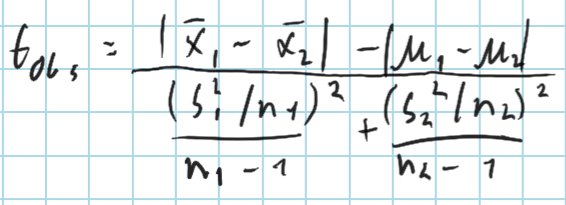 t_obs = (|x̄₁ - x̄₂| - |μ₁ - μ₂|) / ((s₁²/n₁)² / (n₁ - 1) + (s₂²/n₂)² / (n₂ - 1))